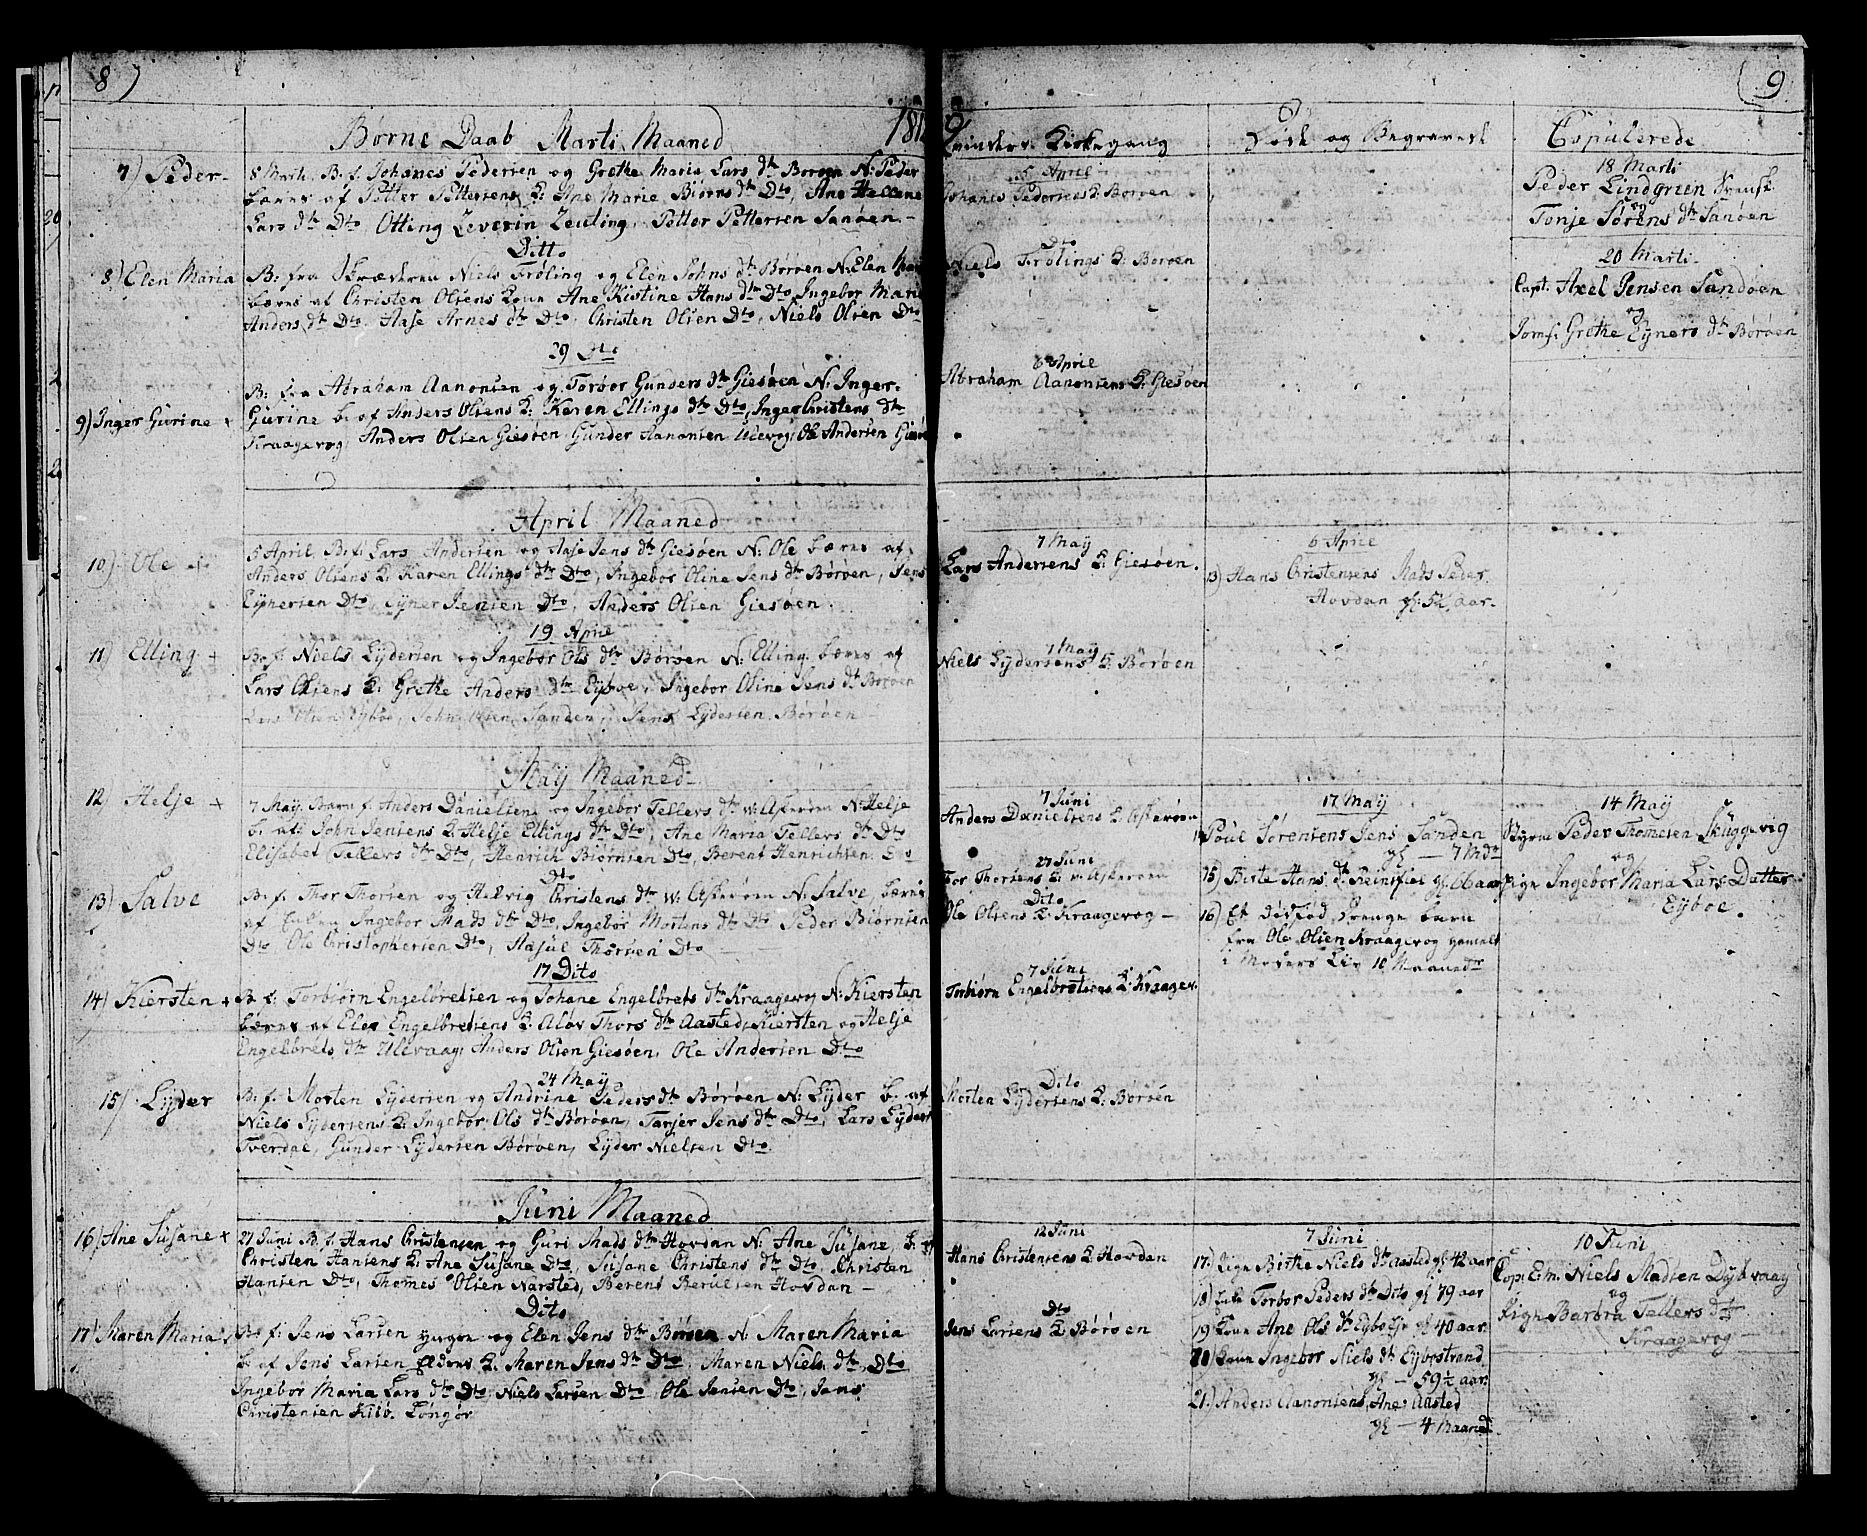 8)
Børne Daab Marti Maaned
1812
7) Peder
8 Marti B. f. Johanes Pedersen og Grethe Maria Lars dtr Borøen N: Peder
bæres af Petter Pettersens K: Ane Marie Biørns dtr Dto, Ane Hellene
Lars dtr Dto Otting Zeverin Zeuling, Petter Pettersen Sanøen.
Ditto
8) Elen Maria
B: fra Skræderen Niels Frøling og Elen Johns dtr Børøen N: Elen Mar
bæres af Christen Olsens Kone Ane Kistine Hans dtr Dto, Ingebor Maria
Anders dtr Dto, Aase Arnes dtr Dto, Christen Olsen Dto, Niels Olsen Dto
29 Dto
9) Inger Gurine +
B: fra Abraham Aanonsen og Torbor Gunders dtr Giesøen N: Inger
Gurine b: af Anders Olsens K: Karen Ellings dtr Dto, Inger Christens dtr
Kraagevog, Anders Olsen Giesøen Gunder Aanonsen Udevog, Ole Andersen Giesø
April Maaned
10) Ole
5 April B. f: Lars Andersen og Aase Jens dtr Giesøen N: Ole bæres af
Anders Olsens K: Karen Ellings dtr Dto, Ingebor Oline Jens dtr Børøen, Jens
Eynersen Dto, Eyner Jensen Dto, Anders Olsen Giesøen
19 April
11) Elling +
B. f. Niels Eydersen og Ingebor Ols dtr Børøen N: Elling bæres af
Lars Olsens K: Grethe Anders dtr Eyboe, Ingebor Oline Jens dtr Børøen
Lars Olsen Eyboe, John Olsen Sanden, Jens Eydersen Børøen
May Maaned
12) Helje +
7 May. Barn f. Anders Danielsen og Ingebor Tellefs dtr w: Askerøen N: Helje
b. af: John Jensens K: Helje Ellings dtr Dto, Ane Maria Tellefs dtr Dto
Elisabet Tellefs dtr Dto, Henrich Biørnsen Dto, Berent Henrichsen Dto
Dto
13) Salve
B: f. Thor Thorsen og Helvig Christens dtr w: Askerøen N: Salve, bæres
af Enken Ingebor Mads dtr Dto, Ingebor Mortens dtr Dto Peder Biørnsen
Dto Ole Christophersen Dto, Aasul Thorsen Dto
17 Dito
14) Kiersten +
B f: Torbiørn Engelbretsen og Johane Engelbrets dtr Kraagevog N: Kiersten
bæres af Elev Engelbretsens K: Aløv Thors dtr Aasted, Kiersten og Helje
Engelbrets dtr Ulevaag, Anders Olsen Giesøen, Ole Andersen Dto
24 May
15) Eyder
B: f. Morten Eydersen og Andrine Peders dtr Børøen N: Eyder b: af
Niels Eydersens K: Ingebor Ols dtr Børøen, Tarjer Jens dtr Dto, Lars Eyders
Tverdal, Gunder Eydersen Børøen, Eyder Nielsen Dto
Juni Maaned
16) Ane Susane +
27 Juni B. f. Hans Christensen og Guri Mads dtr Hovdan N: Ane Susane, b: af
Christen Hansens K: Ane Susane Dto, Susane Christens dtr Dto, Christen
Hansen Dto, Thomes Olsen Narsted, Hovdan
Dito
17) Maren Maria
B: f: Jens Larsen yngre og Elen Jens dtr Børøen N: Maren Maria
b: af Jens Larsen eldres K: Maren Jens dtr Dto, Maren Niels dtr Dto
Ingebor Maria Lars dtr Dto, Niels Larsen Dto, Ole Jensen Dto, Jens
Christensen Kilø. Longør
(9
Qvinders Kirkegang
5 April
Johanes Pedersens K Børøen
Dto
Niels Frølings K. Børøen
6 April
Abraham Aanonsens K: Giesøen
7 May
Lars Andersens K. Giesøen.
7 May
Niels Eydersens K. Børøen
7 Juni
Anders Danielsens K Askerøen
27 Juni
Tor Thorsens K w: Askerøen
Dito
Ole Olsens K. Kraagevog
7 Juni
Torbiørn Engelbretsens K: Kraagev.
Dito
Morten Eydersens K. Børøen
12 Juni
Hans Christensens K Hovdan
Dto
Jens Larsens K Børøen
Døde og Begravede
6 April
13) Hans Christensens Mads Peder
Hovdan gl: 5½ aar.
17 May
14 Poul Sørensens Jens Sanden
gl — 7 Mdr
15) Birte Hans dtr gl. 66 aar
16) Et dødfød Drenge barn
fra Ole Olsen Kraagevog gamelt
i Moders Liv 10 Maaneder
7 Juni
17.) Pign Birthe Niels dtr Aasted gl 42 aar
18) Enke Torbor Peders dtr Dito gl 79 aar
19) Kone Ane Ols dtr Eyboe gl 40 aar
20) Kone Ingebor Niels dtr Eybostrand
gl — 59½ aar.
21.) Anders Aanonsens Ane Aasted
gl — 4 Maaned
Copulerede
18 Marti
Peder Lindgrien Svensk
og
Tonje Sørens dtr Sanøen
20 Marti
Capt. Axel Jensen Sandøen
og
Jomf: Grethe Eyners dtr Børøen
14 May
Styrm Peder Thomesen Skuggevig
og
Pign Ingebor Maria Lars Datter
Eyboe.
10 Juni
Cop: Em. Niels Madsen Dybvaag
og
Pign Barbra Tellefs dtr
Kraagevog